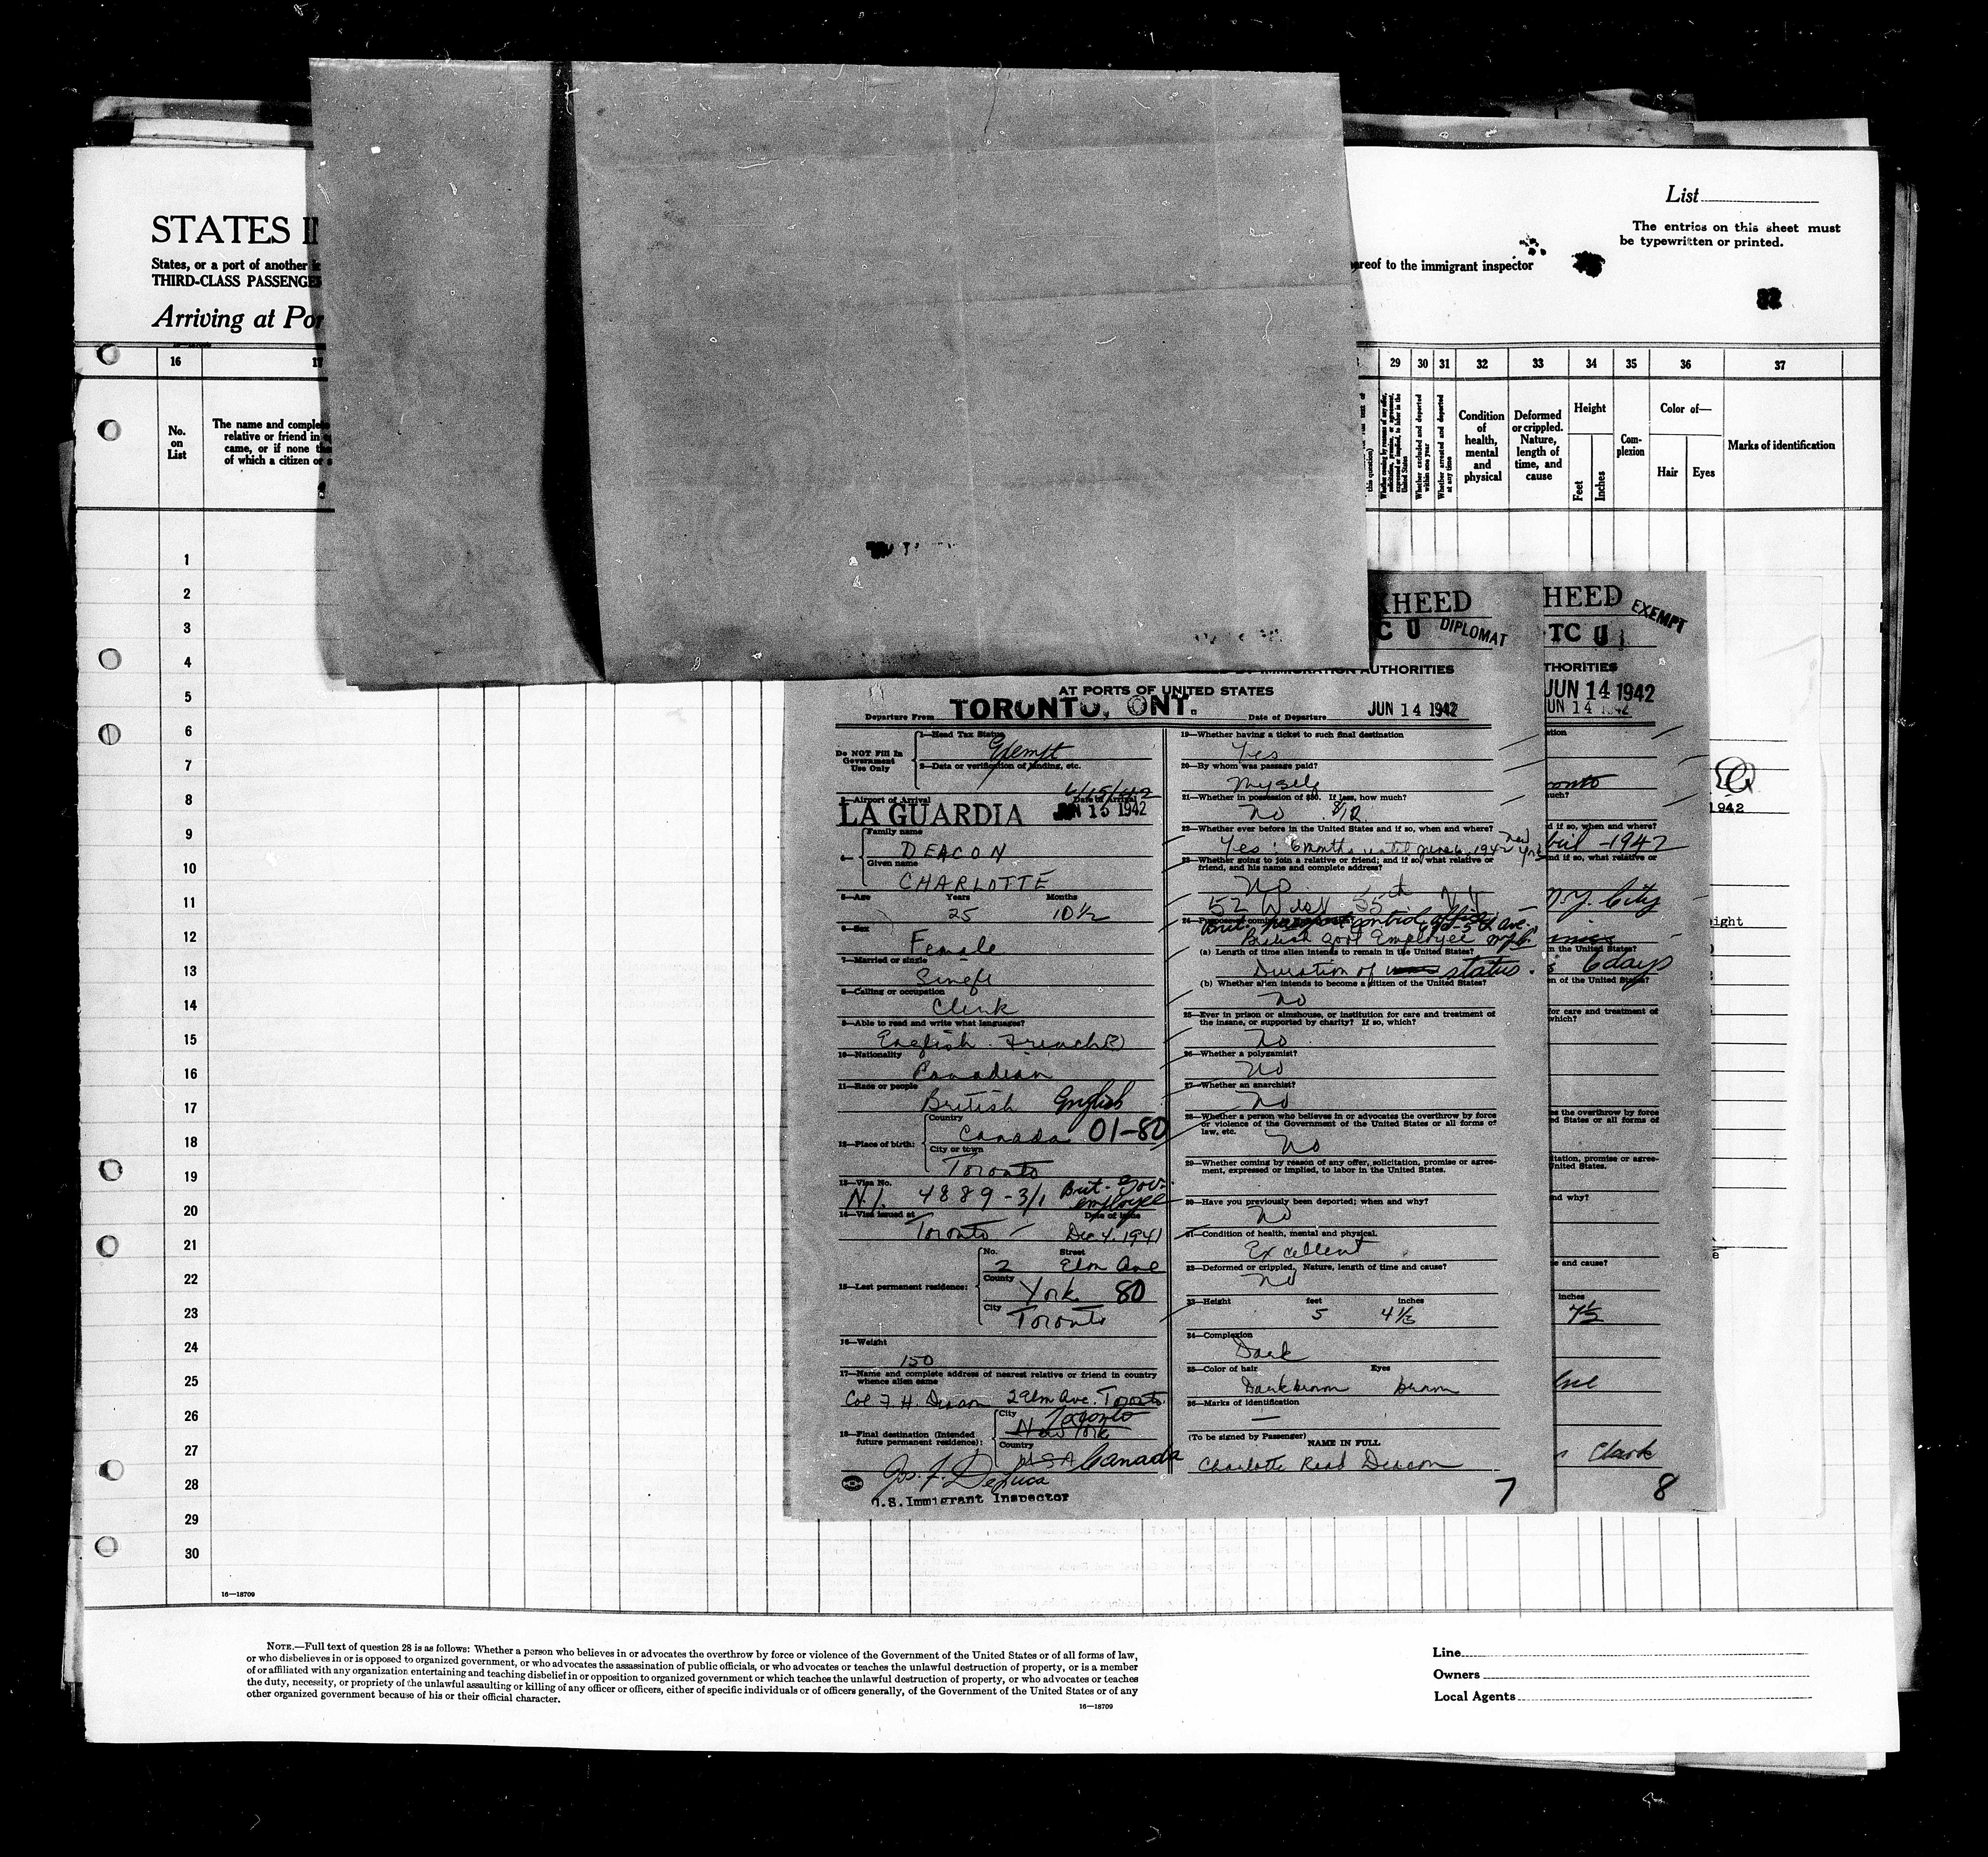 List
The entries on this sheet must
be typewritten or printed.
STATES I
States, or a port of another
THIRD-CLASS PASSENGE
Arriving at Por
ereof to the immigrant inspector
16
29 30 31 32 33 34 35 36 37
No.
on
List
The name and comple
relative or friend in
came, or if none
of which a citizen or
Whether excluded and deported
within one year
Whether arrested and deported
at any time
Condition
of
health,
mental
and
physical
Deformed
or crippled.
Nature,
length of
time, and
cause
Height
Feet
Inches
Com-
plexion
Color of—
Hair
Eyes
Marks of identification
1
2
3
4
5
6
7
8
9
10
11
12
13
14
15
16
17
18
19
20
21
22
23
24
25
26
27
28
29
30
16—18709
KHEED
C U DIPLOMAT
IMMIGRATION AUTHORITIES
AT PORTS OF UNITED STATES
Departure From TORONTO, ONT.
Date of Departure JUN 14 1942
Do NOT Fill In
Government
Use Only
1—Head Tax Status
Exempt
2—Data or verification of landing, etc.
6/15/42
3—Airport of Arrival
Date of Arrival
LA GUARDIA JUN 15 1942
4—
Family name
DEACON
Given name
CHARLOTTE
5—Age Years Months
25 10 1/2
6—Sex
Female
7—Married or single
Single
8—Calling or occupation
Clerk
9—Able to read and write what languages?
English - French (R)
10—Nationality
Canadian
11—Race or people
British English
12—Place of birth:
Country
Canada 01-80
City or town
Toronto
13—Visa No.
N.I. 4889-3/1 Brit. Gov. employee
14—Visa issued at Date of issue
Toronto Dec 4. 1941
15—Last permanent residence:
No. Street
2 Elm Ave
County
York 80
City
Toronto
16—Weight
150
17—Name and complete address of nearest relative or friend in country
whence alien came
Col F. H. Deacon 2 Elm Ave. Toronto
18—Final destination (Intended
future permanent residence):
City
Toronto
New York
Country
USA Canada
Jos. F. DeLuca
U.S. Immigrant Inspector
19—Whether having a ticket to such final destination
Yes
20—By whom was passage paid?
Myself
21—Whether in possession of $50. If less, how much?
No $12
22—Whether ever before in the United States and if so, when and where?
Yes: 6 months until June 6, 1942 New York
23—Whether going to join a relative or friend; and if so, what relative or
friend, and his name and complete address?
No
52 West 55th N.Y.
24—Purpose of coming to
British Govt Employee
(a) Length of time alien intends to remain in the United States?
Duration of status.
(b) Whether alien intends to become a citizen of the United States?
No
25—Ever in prison or almshouse, or institution for care and treatment of
the insane, or supported by charity? If so, which?
No
26—Whether a polygamist?
No
27—Whether an anarchist?
No
28—Whether a person who believes in or advocates the overthrow by force
or violence of the Government of the United States or all forms of
law, etc.
No
29—Whether coming by reason of any offer, solicitation, promise or agree-
ment, expressed or implied, to labor in the United States.
30—Have you previously been deported; when and why?
No
31—Condition of health, mental and physical.
Excellent
32—Deformed or crippled, Nature, length of time and cause?
No
33—Height feet inches
5 4 1/2
34—Complexion
Dark
35—Color of hair Eyes
Dark brown brown
36—Marks of identification
—
(To be signed by Passenger)
NAME IN FULL
Charlotte Read Deacon
7
HEED EXEMPT
TC U
THORITIES
JUN 14 1942
JUN 14 1942
ation
ronto
uch?
d if so, when and where?
-1942
nd if so, what relative or
N.Y. City
in the United States?
6 days
en of the United States?
for care and treatment of
which?
es the overthrow by force
ed States or all forms of
itation, promise or agree-
United States.
nd why?
e and cause?
inches
7 1/2
Clark
8
1942
eight
NOTE.—Full text of question 28 is as follows: Whether a person who believes in or advocates the overthrow by force or violence of the Government of the United States or of all forms of law,
or who disbelieves in or is opposed to organized government, or who advocates the assassination of public officials, or who advocates or teaches the unlawful destruction of property, or is a member
of or affiliated with any organization entertaining and teaching disbelief in or opposition to organized government or which teaches the unlawful destruction of property, or who advocates or teaches
the duty, necessity, or propriety of the unlawful assaulting or killing of any officer or officers, either of specific individuals or of officers generally, of the Government of the United States or of any
other organized government because of his or their official character.
16—18709
Line
Owners
Local Agents